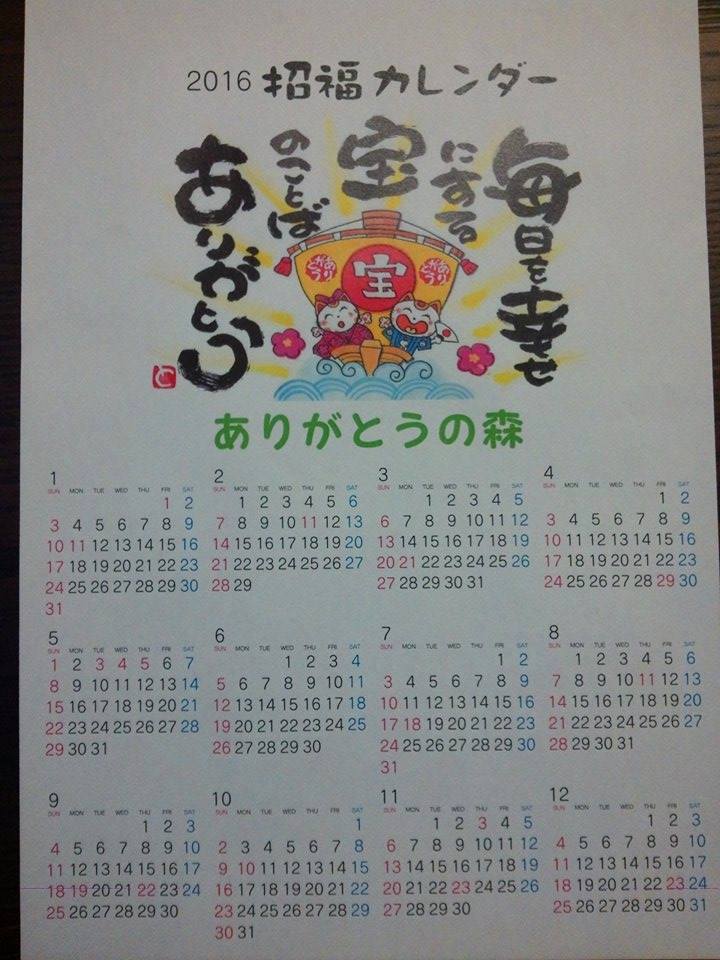 2016 招福カレンダー
毎日を幸せ
にする
宝
のことば
ありがとう
ありがとう
宝
ありがとう
と
ありがとうの森
1
SUN MON TUE WED THU FRI SAT
1 2
3 4 5 6 7 8 9
10 11 12 13 14 15 16
17 18 19 20 21 22 23
24 25 26 27 28 29 30
31
2
SUN MON TUE WED THU FRI SAT
1 2 3 4 5 6
7 8 9 10 11 12 13
14 15 16 17 18 19 20
21 22 23 24 25 26 27
28 29
3
SUN MON TUE WED THU FRI SAT
1 2 3 4 5
6 7 8 9 10 11 12
13 14 15 16 17 18 19
20 21 22 23 24 25 26
27 28 29 30 31
4
SUN MON TUE WED THU FRI SAT
1 2
3 4 5 6 7 8 9
10 11 12 13 14 15 16
17 18 19 20 21 22 23
24 25 26 27 28 29 30
5
SUN MON TUE WED THU FRI SAT
1 2 3 4 5 6 7
8 9 10 11 12 13 14
15 16 17 18 19 20 21
22 23 24 25 26 27 28
29 30 31
6
SUN MON TUE WED THU FRI SAT
1 2 3 4
5 6 7 8 9 10 11
12 13 14 15 16 17 18
19 20 21 22 23 24 25
26 27 28 29 30
7
SUN MON TUE WED THU FRI SAT
1 2
3 4 5 6 7 8 9
10 11 12 13 14 15 16
17 18 19 20 21 22 23
24 25 26 27 28 29 30
31
8
SUN MON TUE WED THU FRI SAT
1 2 3 4 5 6
7 8 9 10 11 12 13
14 15 16 17 18 19 20
21 22 23 24 25 26 27
28 29 30 31
9
SUN MON TUE WED THU FRI SAT
1 2 3
4 5 6 7 8 9 10
11 12 13 14 15 16 17
18 19 20 21 22 23 24
25 26 27 28 29 30
10
SUN MON TUE WED THU FRI SAT
1
2 3 4 5 6 7 8
9 10 11 12 13 14 15
16 17 18 19 20 21 22
23 24 25 26 27 28 29
30 31
11
SUN MON TUE WED THU FRI SAT
1 2 3 4 5
6 7 8 9 10 11 12
13 14 15 16 17 18 19
20 21 22 23 24 25 26
27 28 29 30
12
SUN MON TUE WED THU FRI SAT
1 2 3
4 5 6 7 8 9 10
11 12 13 14 15 16 17
18 19 20 21 22 23 24
25 26 27 28 29 30 31